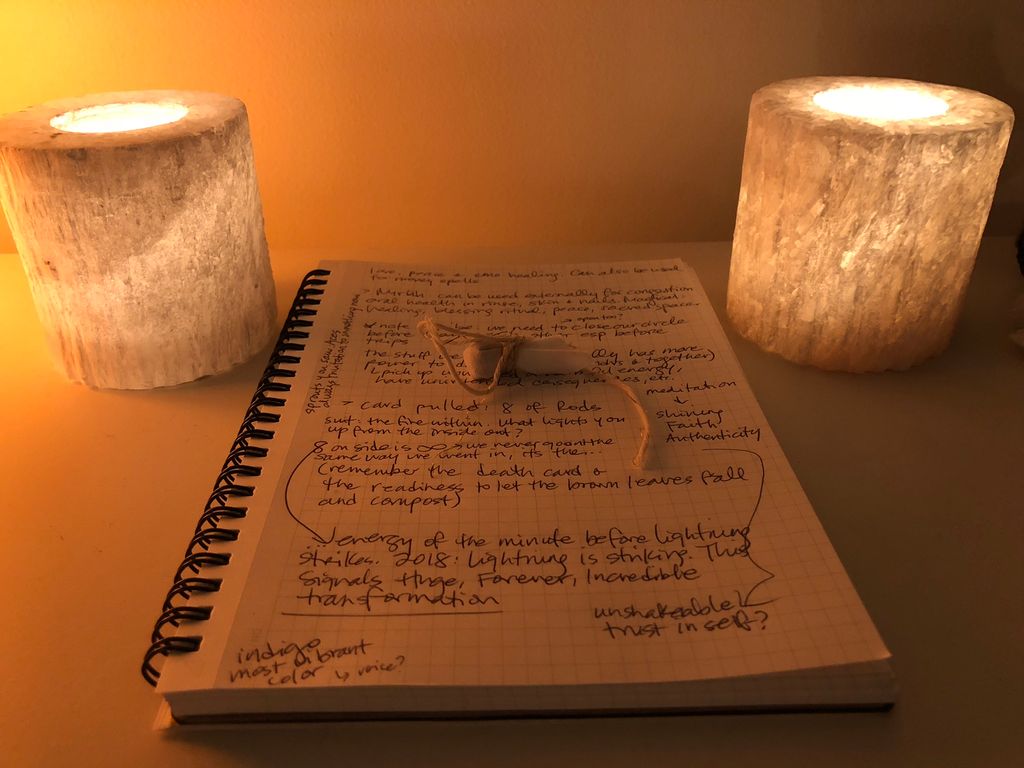 love, peace & emo healing. Can also be used
for money spells
> Myrrh can be used externally for congestion
oral health in rinse, skin & nails. Magical:
healing, blessing ritual, peace, sacred space.
> open too?
note we need to close our circle
before other esp before
trips
The stuff we has more
power to & together)
pick up energy,
have consequences, etc.
sprouts you saw, tree
always trust into to smething new
> card pulled: 8 of Rods
suit: the fire within. What lights you
up from the inside out?
8 on side is ∞ so we never go out the
same way we went in, it's the...
(remember the death card &
the readiness to let the brown leaves fall
and compost)
meditation
↓
shining
Faith
Authenticity
energy of the minute before lightning
strikes. 2018: Lightning is striking. This
signals Huge, Forever, Incredible
transformation
unshakeable
trust in self?
indigo
most vibrant
color ↳ voice?